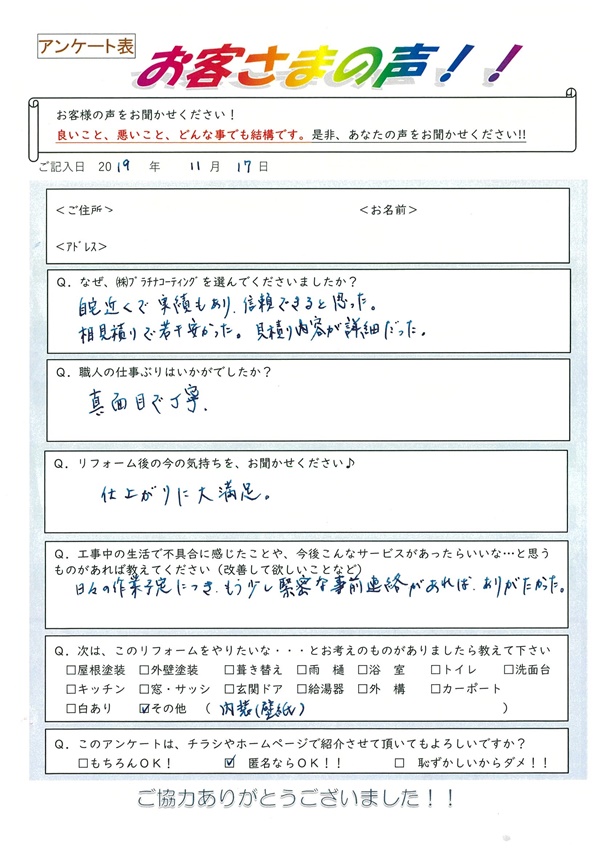 アンケート表
お客さまの声！！
お客様の声をお聞かせください！
良いこと、悪いこと、どんな事でも結構です。是非、あなたの声をお聞かせください!!
ご記入日　2019　年　11月　17日
＜ご住所＞　＜お名前＞
＜ｱﾄﾞﾚｽ＞
Ｑ．なぜ、㈱ﾌﾟﾗﾁﾅｺｰﾃｨﾝｸﾞを選んでくださいましたか？
自宅近くで実績もあり、信頼できると思った。
相見積りで若干安かった。見積り内容が詳細だった。
Ｑ．職人の仕事ぶりはいかがでしたか？
真面目で丁寧。
Ｑ．リフォーム後の今の気持ちを、お聞かせください♪
仕上がりに大満足。
Ｑ．工事中の生活で不具合に感じたことや、今後こんなサービスがあったらいいな…と思う
ものがあれば教えてください（改善して欲しいことなど）
日々の作業予定につき、もう少し緊密な事前連絡があれば、ありがたかった。
Ｑ．次は、このリフォームをやりたいな・・・とお考えのものがありましたら教えて下さい
□屋根塗装　□外壁塗装　□葺き替え　□雨　樋　□浴　室　□トイレ　□洗面台
□キッチン　□窓・サッシ　□玄関ドア　□給湯器　□外　構　□カーポート
□白あり　☑その他　（　内装(壁紙)　）
Ｑ．このアンケートは、チラシやホームページで紹介させて頂いてもよろしいですか？
□もちろんＯＫ！　☑　匿名ならＯＫ！！　□　恥ずかしいからダメ！！
ご協力ありがとうございました！！